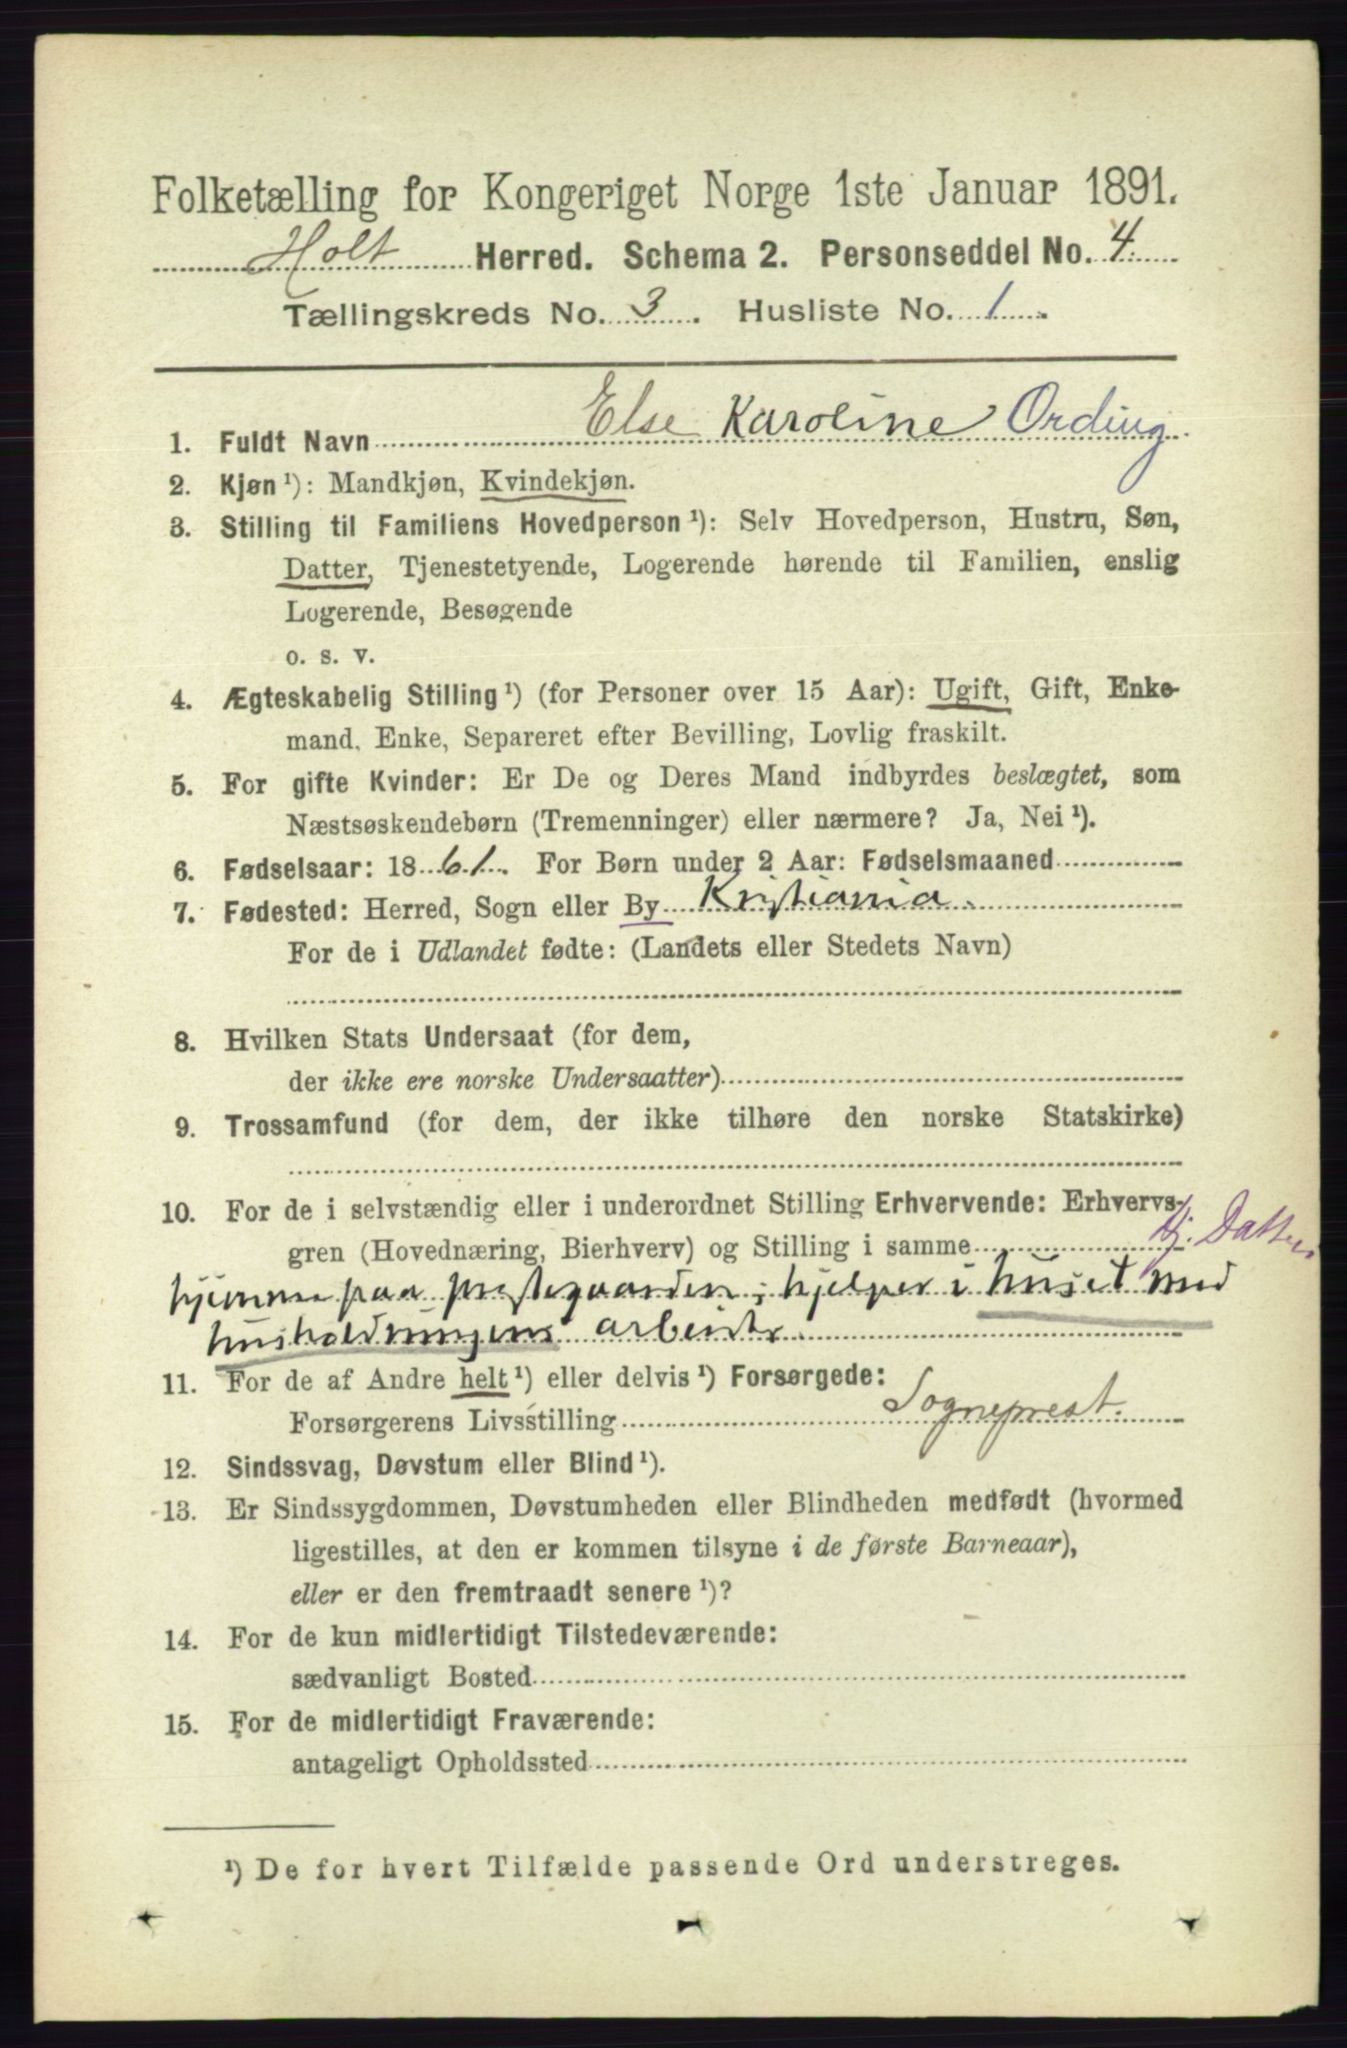 Folketælling for Kongeriget Norge 1ste Januar 1891.
Holt Herred. Schema 2. Personseddel No. 4.
Tællingskreds No. 3. Husliste No. 1.
1. Fuldt Navn Else Karoline Ording
2. Kjøn ¹): Mandkjøn, Kvindekjøn.
3. Stilling til Familiens Hovedperson ¹): Selv Hovedperson, Hustru, Søn,
Datter, Tjenestetyende, Logerende hørende til Familien, enslig
Logerende, Besøgende
o. s. v.
4. Ægteskabelig Stilling ¹) (for Personer over 15 Aar): Ugift, Gift, Enke-
mand, Enke, Separeret efter Bevilling, Lovlig fraskilt.
5. For gifte Kvinder: Er De og Deres Mand indbyrdes beslægtet, som
Næstsøskendebørn (Tremenninger) eller nærmere? Ja, Nei ¹).
6. Fødselsaar: 1861. For Børn under 2 Aar: Fødselsmaaned
7. Fødested: Herred, Sogn eller By Kristiania.
For de i Udlandet fødte: (Landets eller Stedets Navn)
8. Hvilken Stats Undersaat (for dem,
der ikke ere norske Undersaatter)
9. Trossamfund (for dem, der ikke tilhøre den norske Statskirke)
10. For de i selvstændig eller i underordnet Stilling Erhvervende: Erhvervs-
gren (Hovednæring, Bierhverv) og Stilling i samme hj. Datter
hjemme paa prestegaarden; hjelper i huset med
husholdningens arbeide.
11. For de af Andre helt ¹) eller delvis ¹) Forsørgede:
Forsørgerens Livsstilling Sogneprest.
12. Sindssvag, Døvstum eller Blind ¹).
13. Er Sindssygdommen, Døvstumheden eller Blindheden medfødt (hvormed
ligestilles, at den er kommen tilsyne i de første Barneaar),
eller er den fremtraadt senere ¹)?
14. For de kun midlertidigt Tilstedeværende:
sædvanligt Bosted
15. For de midlertidigt Fraværende:
antageligt Opholdssted
¹) De for hvert Tilfælde passende Ord understreges.